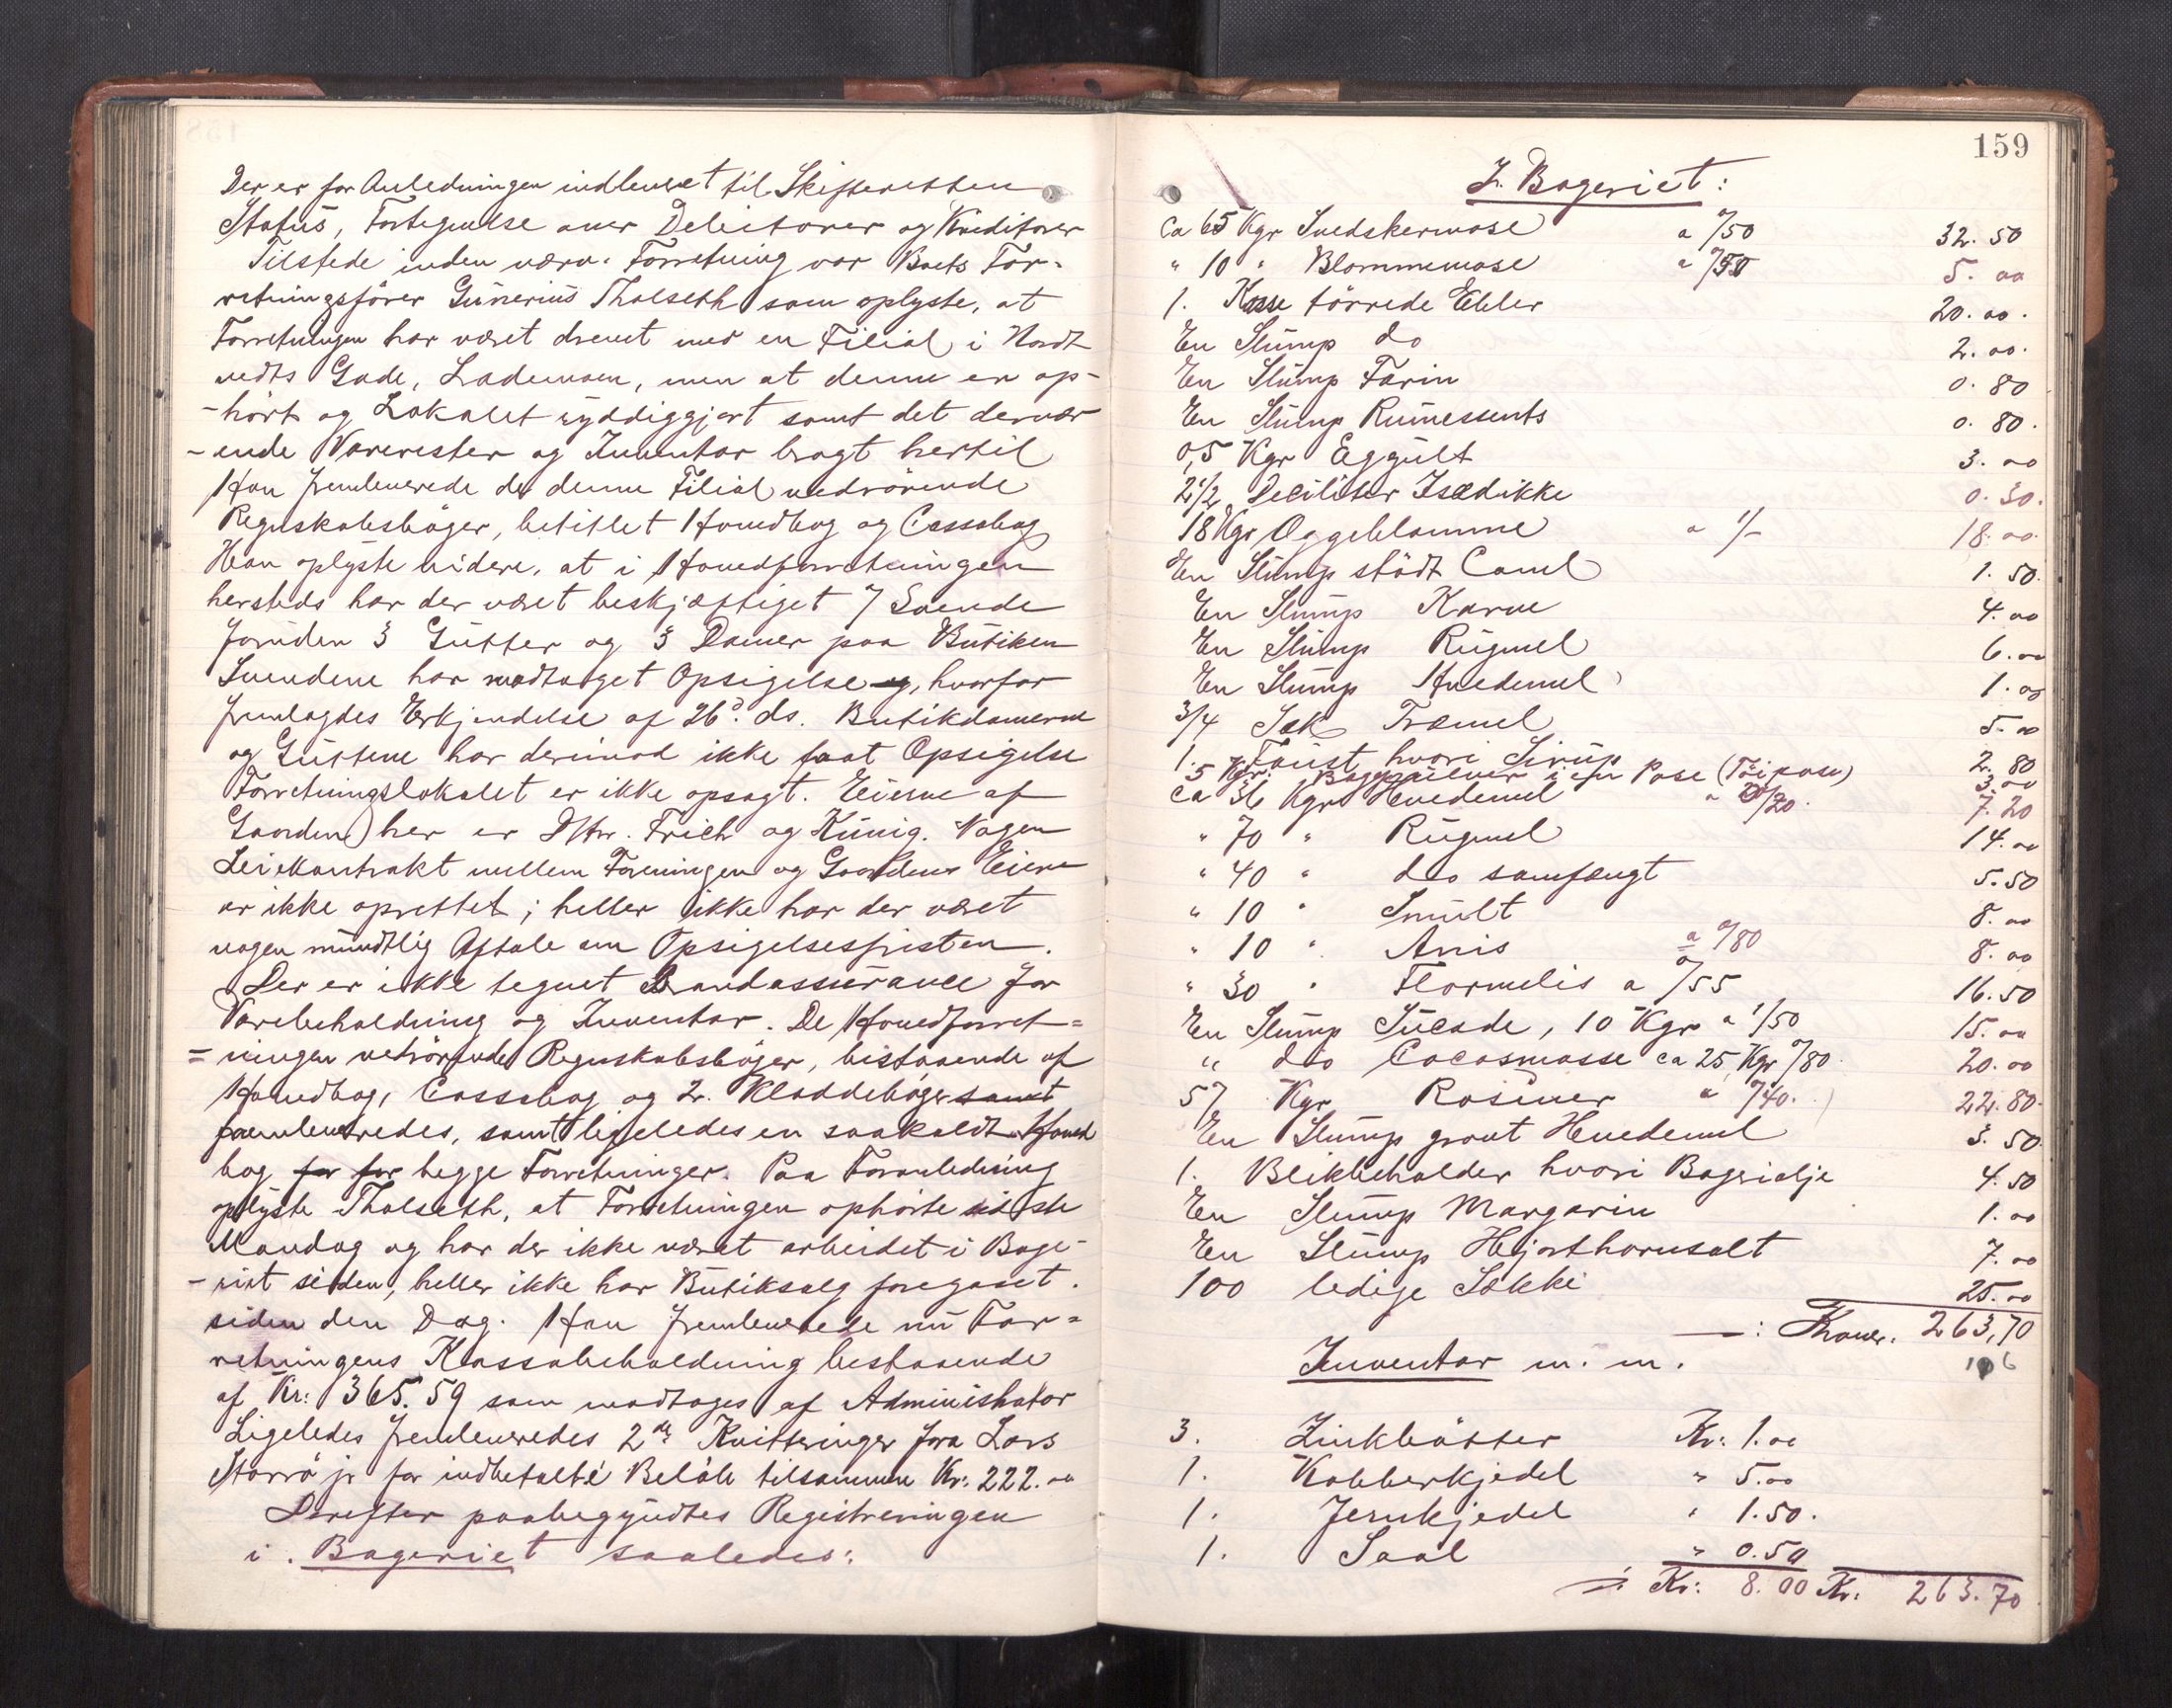 Der er for Anledningen indleveret til Skifteretten
Status, Fortegnelse over Debitorer og Kreditorer
Tilstede inden nærv. Forretning var Boets For-
retningsfører Gunerius Tholseth som oplyste, at
Forretningen har været drevet med en Filial i Nordt
vedts Gade, Lademoen, men at denne er op-
-hørt og Lokalet ryddiggjort samt det dervær
-ende Varerester og Inventar bragt hertil
Han fremleverede de denne Filial vedrörende
Regnskabsböger, betitlet Hovedbog og Cassabog
Han oplyste videre, at i Hovedforretningen
hersteds har der været beskjæftiget 7 Svende
foruden 3 Gutter og 3 Damer paa Butiken
Svendene har modtaget Opsigelse og, hvorfor
fremlagdes Erkjendelse af 26d. ds. Butikdamerne
og Guttene har derimod ikke faat Opsigelse
Forretningslokalet er ikke opsagt. Eierne af
Gaarden her er DHrr. Frich og Künig. Nogen
Leiekontrakt mellem Foreningen og Gaardens Eiere
er ikke oprettet; heller ikke har der været
nogen mundtlig Aftale om Opsigelsesfristen.
Der er ikke tegnet Brandassurance for
Varebeholdning og Inventar. De Hovedforret=
=ningen vedrörende Regnskabsböger, bestaaende af
Hovedbog, Cassabog og 2. Kladdeböger samt
fremleveredes, samt ligeledes en saakaldt Hoved
bog for for begge Forretninger. Paa Foranledning
oplyste Tholseth, at Forretningen ophörte sidste
Mandag og har der ikke været arbeidet i Bage-
-riet siden, heller ikke har Butiksalg foregaaet.
siden den Dag. Han fremleverede nu For=
retningens Kassabeholdning bestaaende
af Kr: 365.59 som modtages af Administrator
Ligeledes fremleveredes 2de Kvitteringer fra Lars
Storrö jr for indbetalte Belöb tilsammen Kr: 222.00
Derefter paabegyndtes Registreringen
i. Bageriet saaledes:
159
I. Bageriet:
Ca 65 Kgr Svedskermose a 0/50 32.50
" 10 " Blommemose a 0/50 5.00
1. Kasse törrede Ebler 20.00.
En Slump do 2.00.
En Slump Farin 0.80
En Slump Rumessents 0.80.
0,5 Kgr Eggult 3.00
2 1/2 Deciliter Isedikke 0.30.
18 Kgr Æggeblomme a 1/- 18.00.
En Slump stödt Canel 1.50.
En Slump Karve 4.00
En Slump Rugmel 6.00
En Slump Hvedemel 1.00
3/4 Sæk Træmel 5.00
1. Foust hvori Sirup 2.80
5 Kgr. Bagepulver i en Pose (Töipose) 3.00
Ca 36 Kgr Hvedemel a 0/20. 7.20
" 70 " Rugmel 14.00
" 40 " do samfængt 5.50
" 10 " Smult 8.00
" 10 " Anis a 0/80 8.00
" 30 " Flormelis a 0/55 16.50
En Slump Sucade, 10 Kgr a 1/50 15.00
" do Cocosmasse ca 25 Kgr 0/80 20.00
57 Kgr Rosiner a 0/40. 22.80.
En Slump grovt Hvedemel 3.50.
1. Blikbeholder hvori Bagerialje 4.50
En Slump Margarin 1.00
En Slump Hjorthornsalt 7.00
100 ledige Sække 25.00
—: Kroner. 263,70
Inventar m. m. 106
3. Zinkbötter Kr: 1.00
1. Kobberkjedel " 5.00
1. Jernkjedel " 1.50.
1. Saal " 0.50
÷: Kr: 8.00 Kr: 263.70